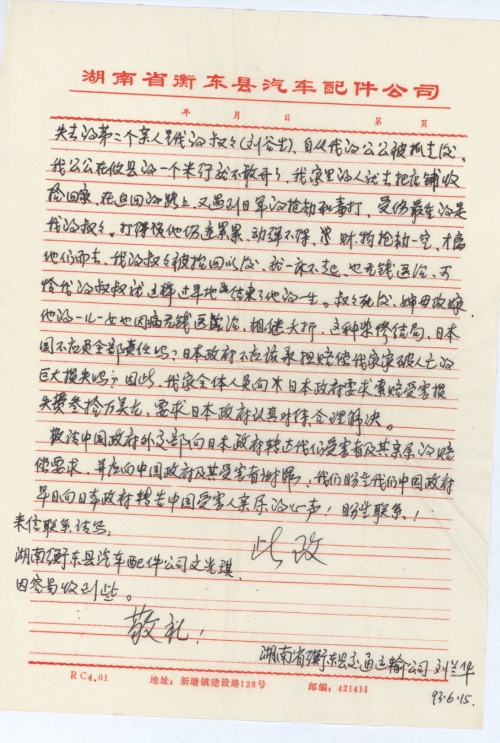 湖南省衡东县汽车配件公司
年 月 日 第 页
失去的第二个亲人是我的叔叔(刘谷生)、自从我的公公被抓走后,
我公公在攸县的一个米行就不敢开了、我家里的人就去把店铺收
拾回家,在返回的路上、又遇到日军的抢劫和毒打,受伤最重的是
我的叔叔。打得他伤连累累、动弹不得、财物抢劫一空,才离
他们而去、我的叔叔被抬回以后、就一床不起、也无钱医治、可
怜我的叔叔就这样过早地结束了他的一生。叔叔死后、婶母改嫁
他的一儿一女也因病无钱医治、相继夭折、这种悲惨结局、日本
国不应负全部责任吗?日本政府不应该承担赔偿我家家破人亡的
巨大损失吗?因此、我家全体人员向日本政府要求索赔受害损
失费叁拾万美元、要求日本政府认真对待、合理解决。
敬请中国政府外交部向日本政府转达我们受害者及其亲属的赔
偿要求、并应向中国政府及其受害者谢罪、我们盼望我们中国政府
早日向日本政府转告中国受害人亲属的心声!盼望联系!
来信联系请写、 此致
湖南衡东县汽车配件公司文 琪
因容易收到些。
敬礼!
湖南省衡东县交通运输公司 刘兰华
93.6.15.
RC4.01 地址:新塘镇建设路128号 邮编:421411